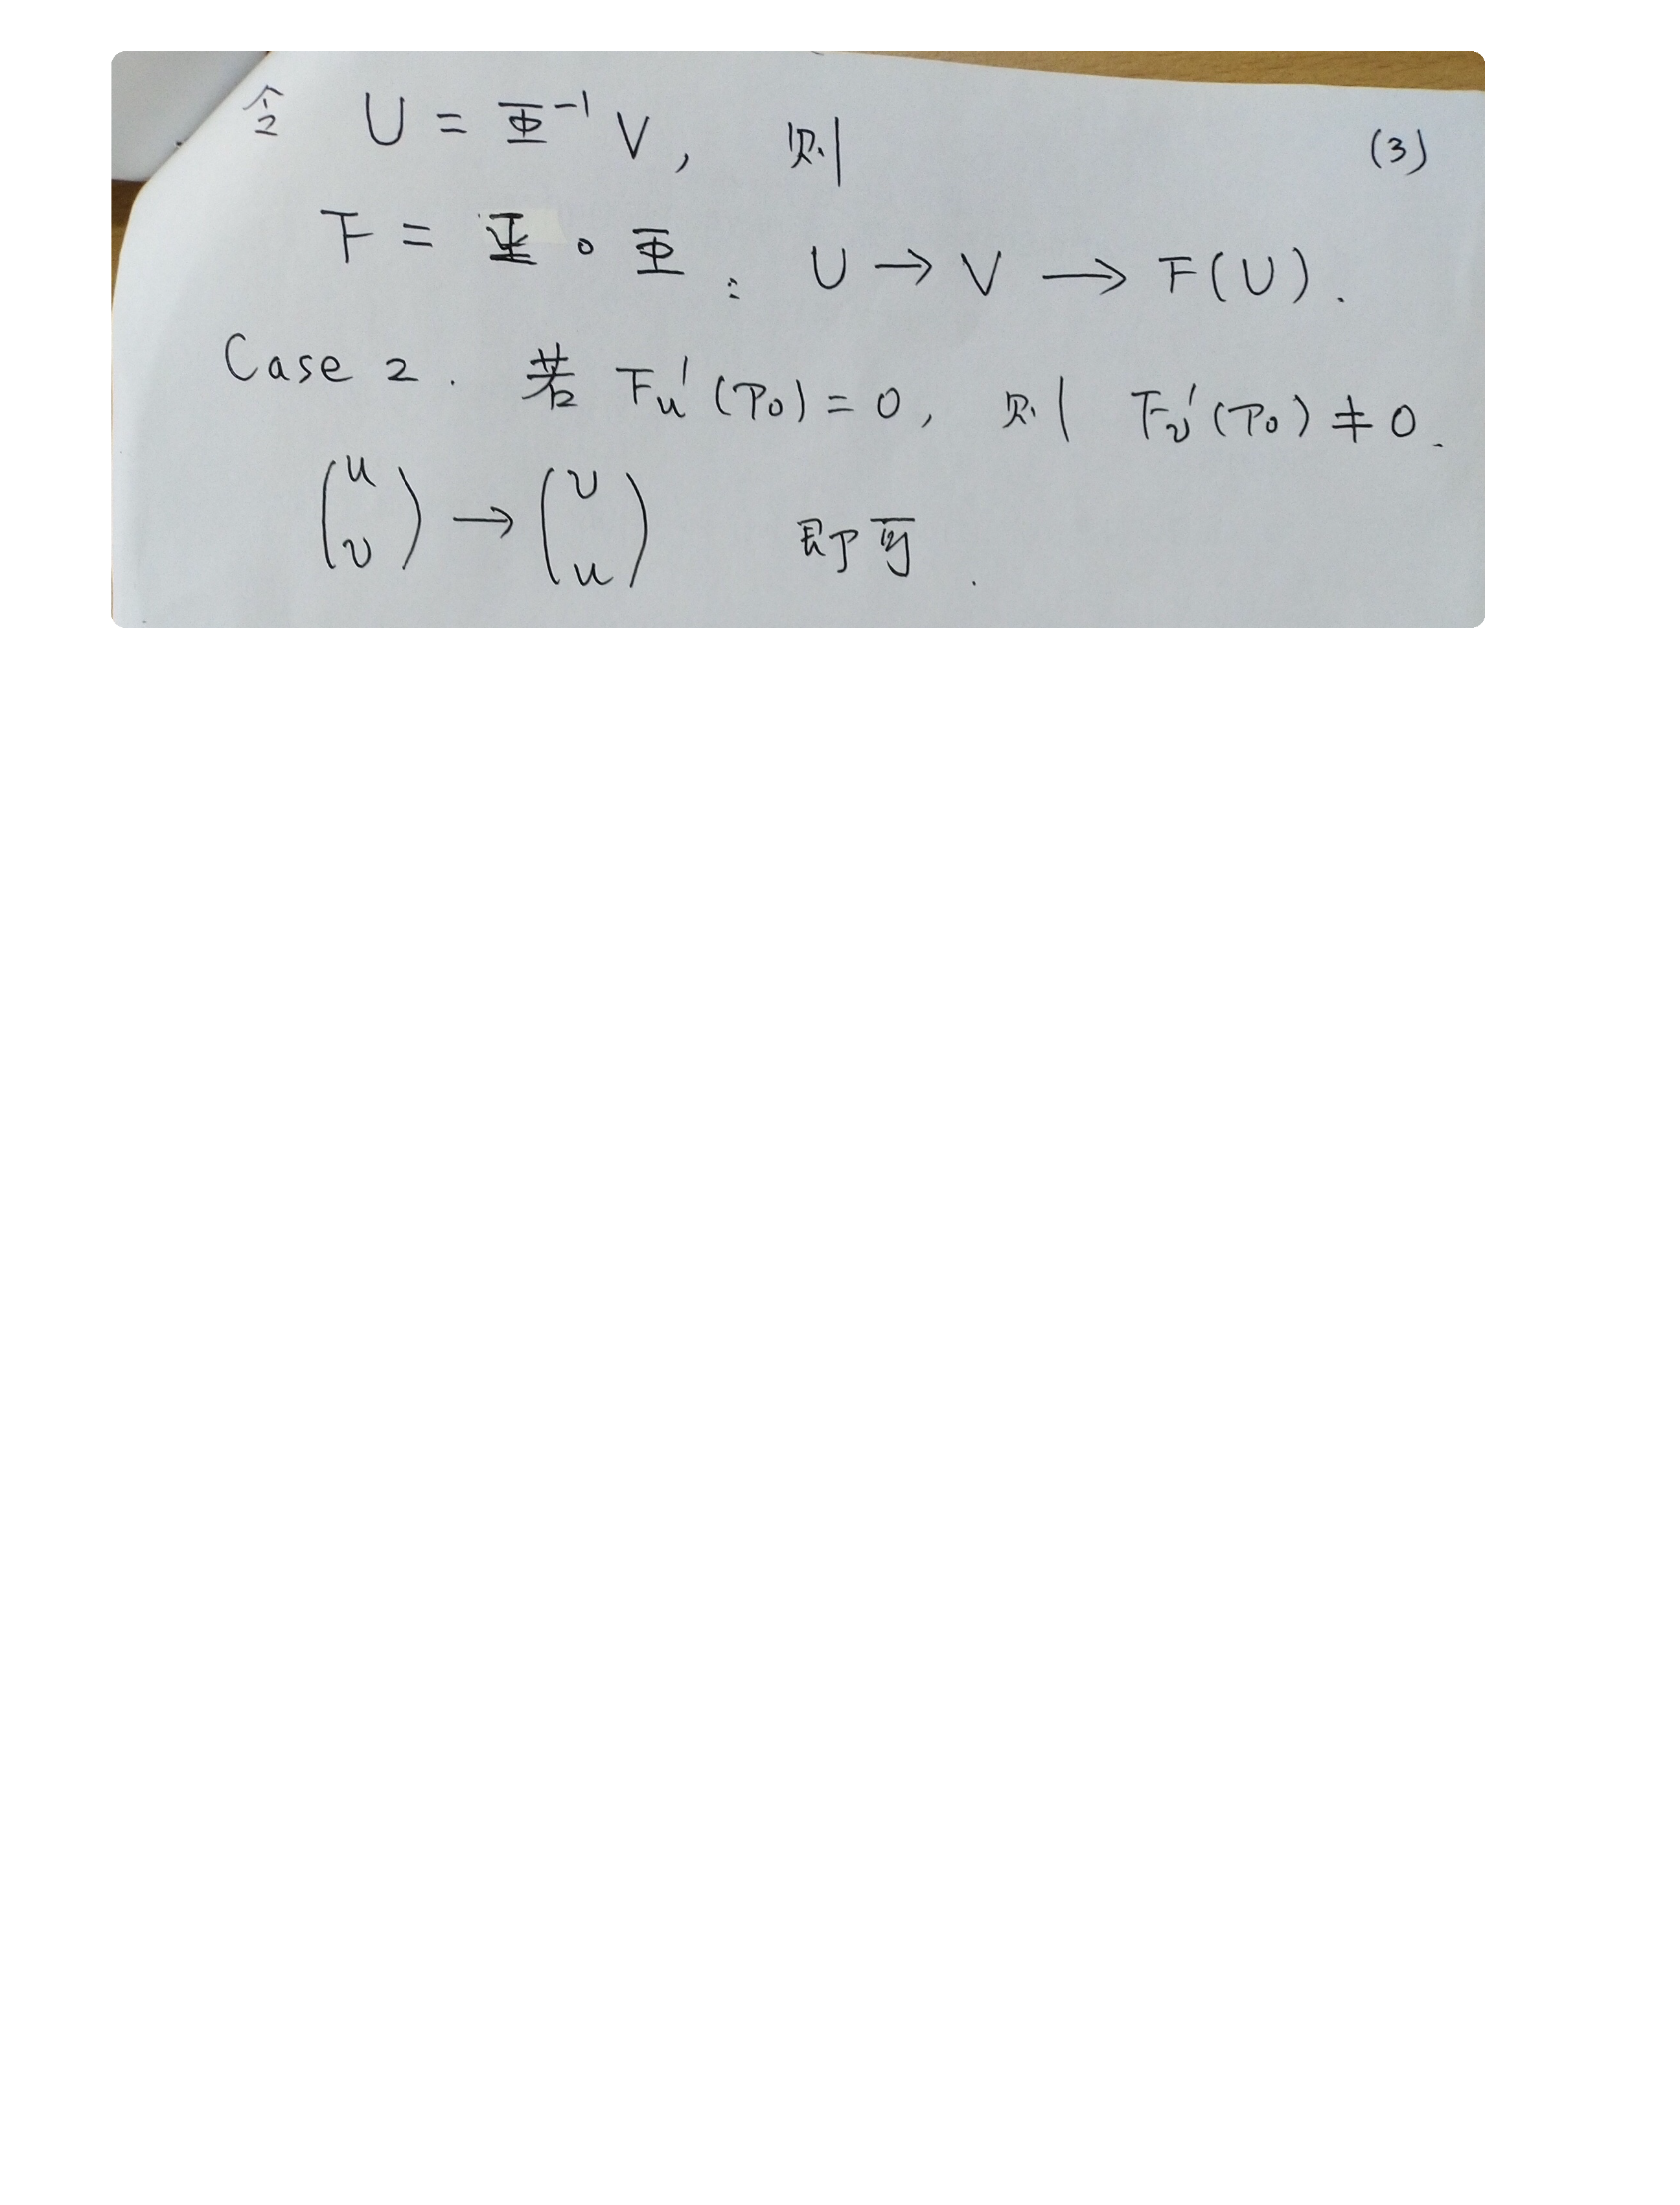 令 U = Φ⁻¹ V, 则 (3)
F = Ψ ∘ Φ : U → V → F(U).
Case 2. 若 Fu'(P0) = 0, 则 Fv'(P0) ≠ 0.
(u v) → (v u) 即可.